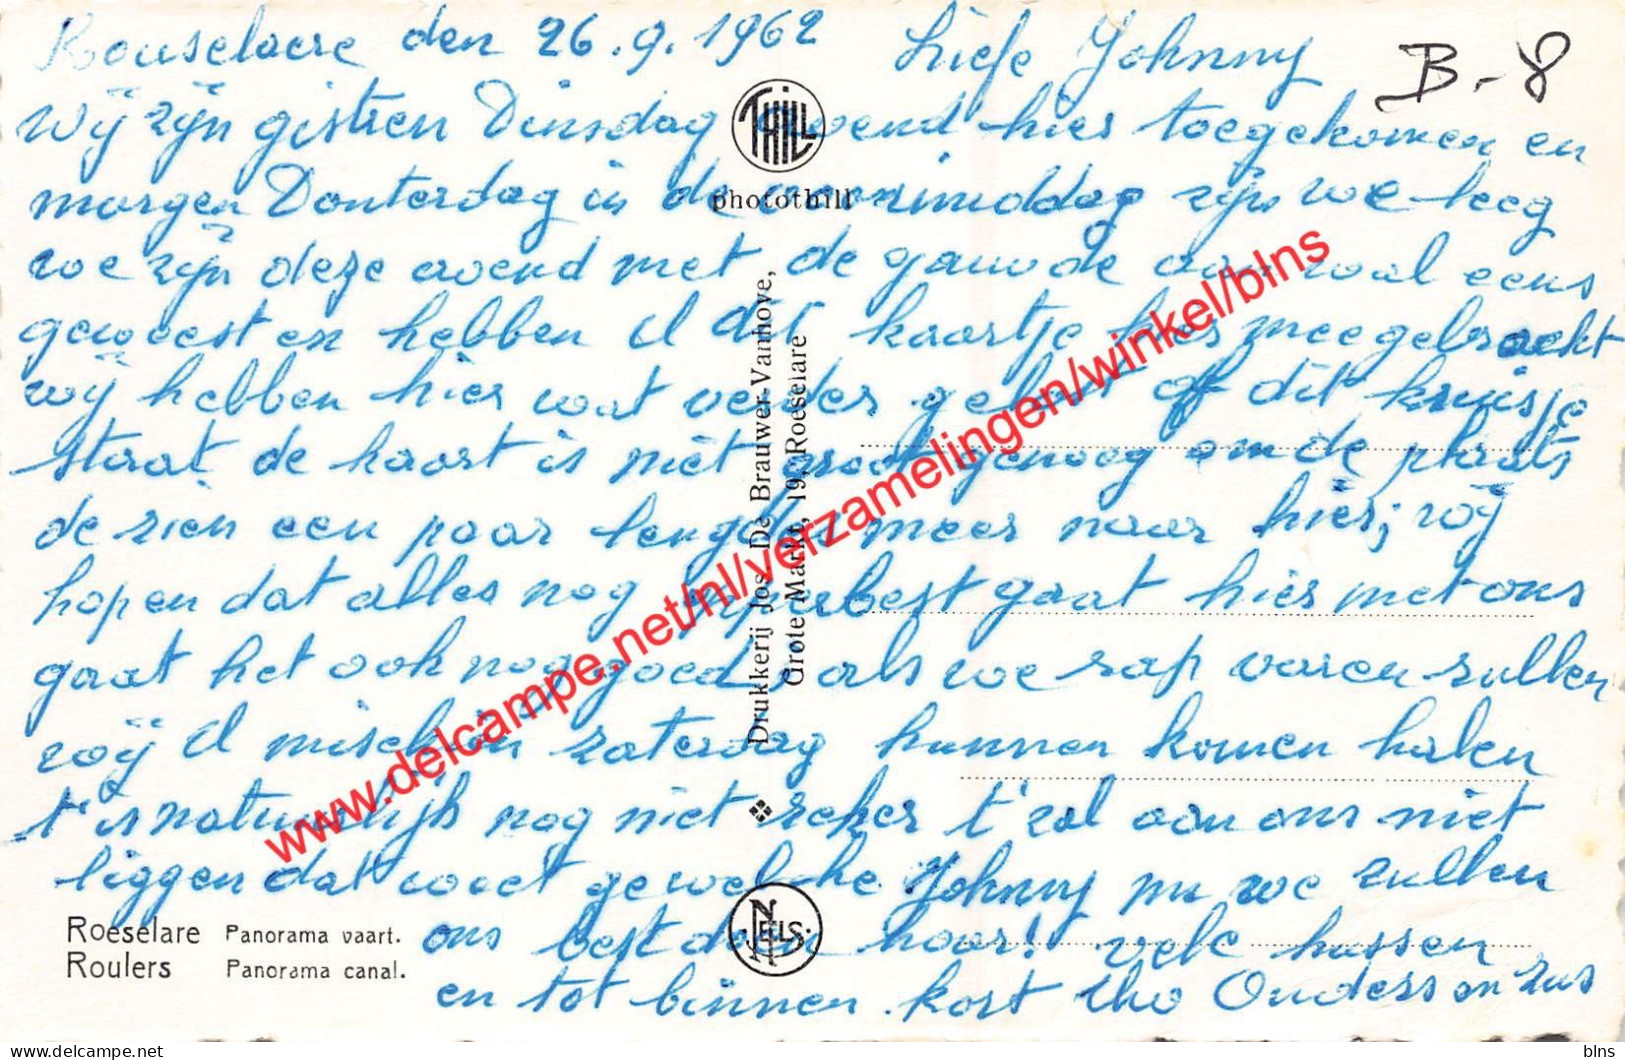 Rouselaere den 26.9.1962 Liefe Johnny
B-8
wij zijn gistren Dinsdag avend hier toegekomen en
morgen Donterdag is de voornimiddag zijn we leeg
we zijn deze avend met de gauwde aan wal eens
geweest en hebben U dit kaartje hier meegebracht
wij hebben hier wat verder gelost of dit kruisje
staat de kaart is niet groot genoeg om de plaats
de zien een paar lengden meer naar hier; wij
hopen dat alles nog opperbest gaat hier met ons
gaat het ook nog goed, als we rap varen zullen
wij U mischien zaterdag kunnen komen halen
t'is natuurlijk nog niet zeker t'zal aan ons niet
liggen dat weet ge welche Johnny nu we zullen
ons best doen hoor! vele kussen
en tot binnen kort Uw Ouders en zus
THILL
photothill
Drukkerij Jos. De Brauwer-Vanhove,
Grote Markt, 19, Roeselare
NELS
Roeselare Panorama vaart.
Roulers Panorama canal.
www.delcampe.net/nl/verzamelingen/winkel/blns
blns